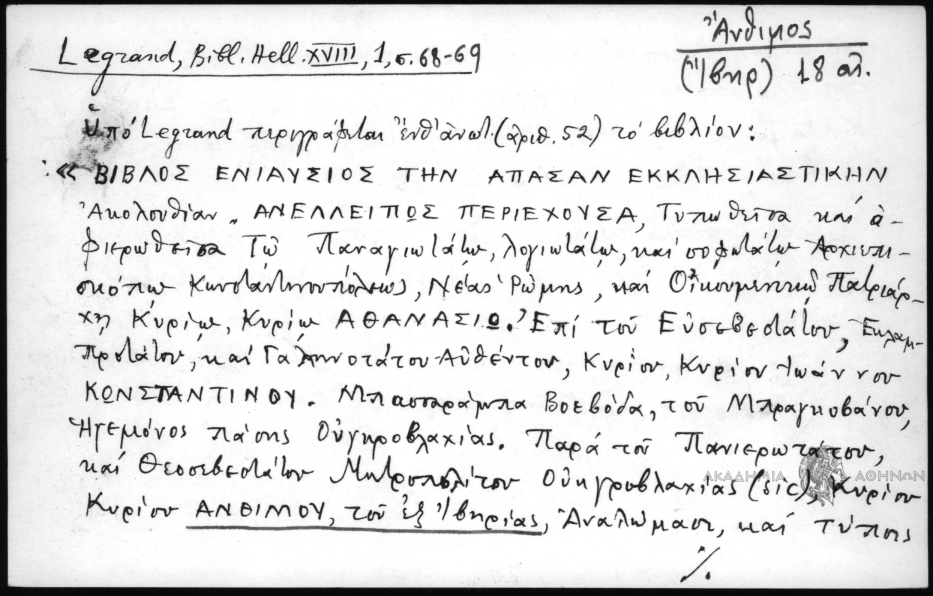 Ἄνθιμος
Legrand, Bibl. Hell. XVIII, 1, σ. 68-69
(Ἴβηρ) 18 αἰ.
Ὑπό Legrand περιγράφεται ἐνθ' ἀνωτ. (ἀριθ. 52) τό βιβλίον:
: « ΒΙΒΛΟΣ ΕΝΙΑΥΣΙΟΣ ΤΗΝ ΑΠΑΣΑΝ ΕΚΚΛΗΣΙΑΣΤΙΚΗΝ
Ἀκολουθίαν. ΑΝΕΛΛΕΙΠΩΣ ΠΕΡΙΕΧΟΥΣΑ, Τυπωθεῖσα καί ἀ-
φιερωθεῖσα Τῶ Παναγιωτάτω, λογιωτάτω, καί σοφωτάτω Ἀρχιεπι-
σκόπω Κωνσταντινουπόλεως, Νέας Ῥώμης, καί Οἰκουμενικῶ Πατριάρ-
χη Κυρίω, Κυρίω ΑΘΑΝΑΣΙΩ. Ἐπί τοῦ Εὐσεβεστάτου, Ἐκλαμ-
προτάτου, καί Γαληνοτάτου Αὐθέντου, Κυρίου, Κυρίου Ἰωάννου
ΚΩΝΣΤΑΝΤΙΝΟΥ. Μπασαράμπα Βοεβόδα, τοῦ Μπραγκοβάνου,
Ἡγεμόνος πάσης Οὐγκροβλαχίας. Παρά τοῦ Πανιερωτάτου,
καί Θεοσεβεστάτου Μητροπολίτου Οὐκγροβλαχίας (sic), Κυρίου
ΑΚΑΔΗΜΙΑ ΑΘΗΝΩΝ
Κυρίου ΑΝΘΙΜΟΥ, τοῦ ἐξ Ἰβηρίας, Ἀναλώμασι, καί τύποις
./.